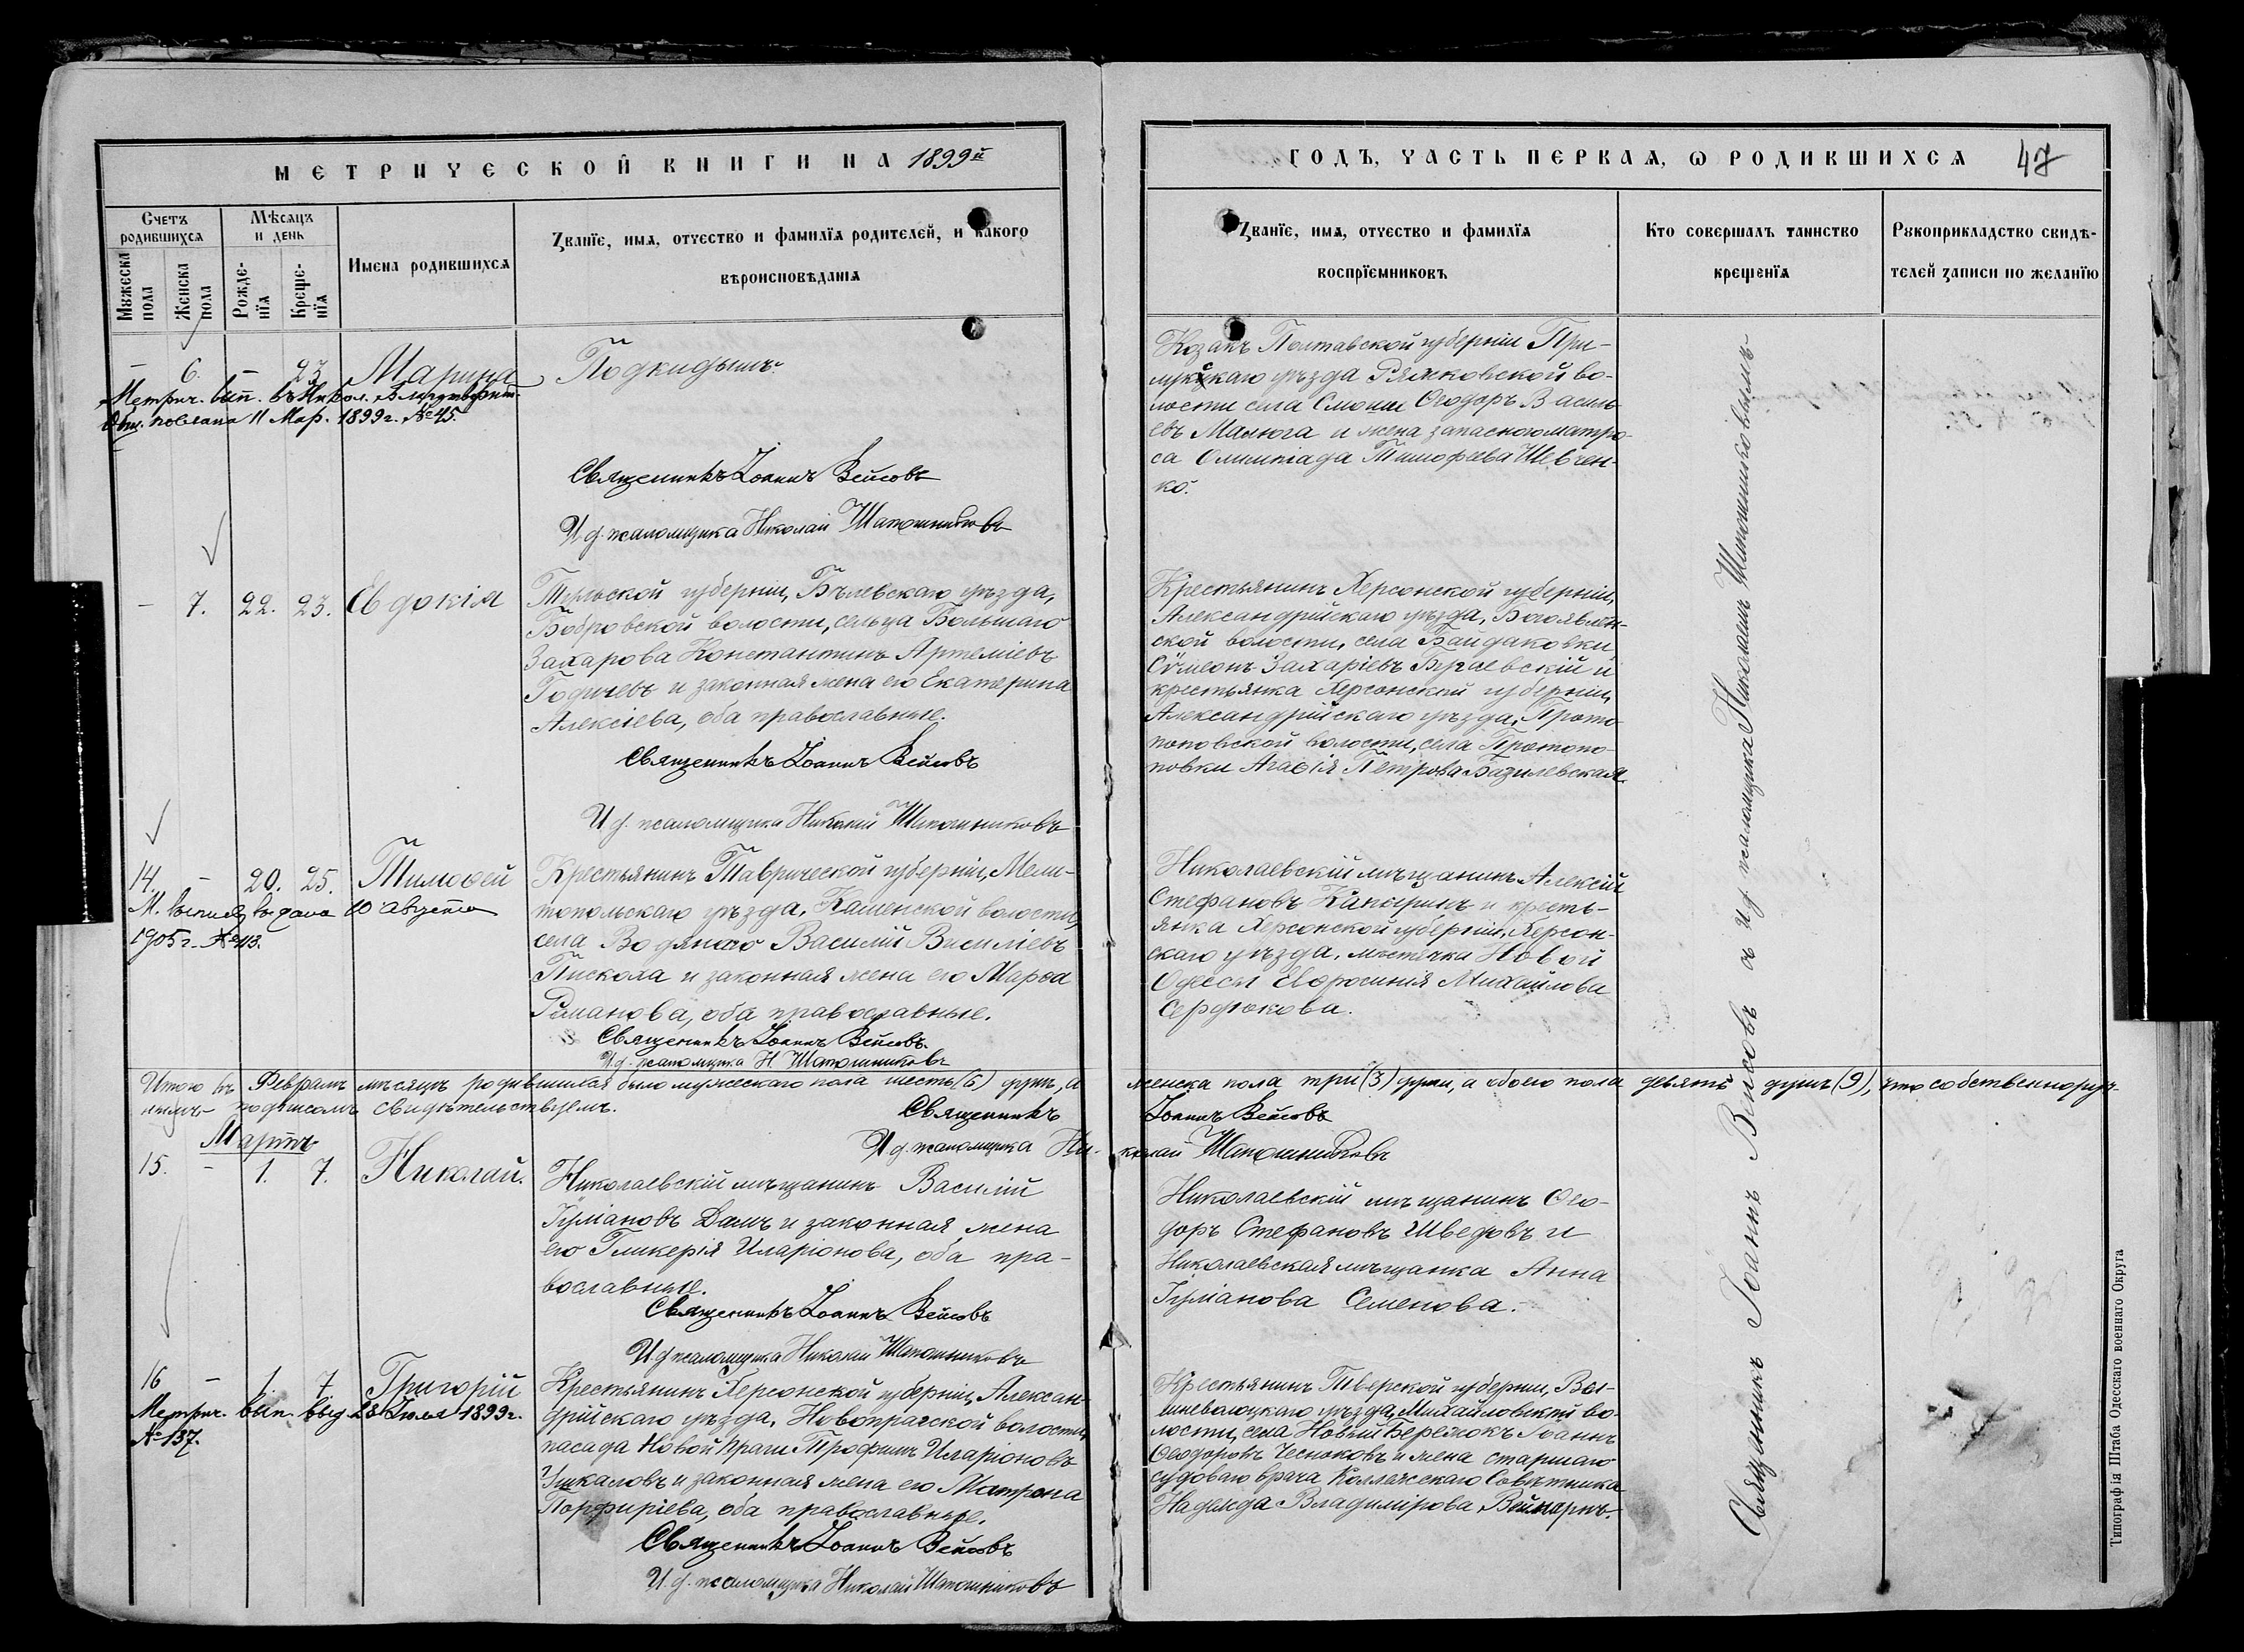 МЕТРИЧЕСКОЙ КНИГИ НА 1899й
ГОДЪ, ЧАСТЬ ПЕРВАЯ, Ѡ РОДИВШИХСЯ
47
Счетъ родившихся
Мѣсяцъ и день
Имена родившихся
Званїе, имя, отчество и фамилїя родителей, и какого
вѣроисповѣданїя
Званїе, имя, отчество и фамилїя
воспрїемниковъ
Кто совершалъ таинство
крещенїя
Рꙋкоприкладство свидѣ-
телей записи по желанїю
Мꙋжеска пола
Женска пола
Рожде-нїя
Креще-нїя
– 6. – 23 Марина
Метрич. вып. въ Никол. Благотворит.
Общ. послана 11 Мар. 1899 г. №45.
Подкидышъ
Священникъ Іоаннъ Вейсовъ
И. д. псаломщика Николай Шапошниковъ
Козакъ Полтавской губерніи При-
лукскаго уѣзда Ряжковской во-
лости села Смоши Ѳеодоръ Василь-
евъ Малюга и жена запасного матро-
са Олимпіада Тимофеева Шевчен-
ко.
– 7. 22. 23. Евдокія
Тульской губерніи, Бѣлевскаго уѣзда,
Бобровской волости, сельца Большаго
Захарова Константинъ Артеміевъ
Годичевъ и законная жена его Екатерина
Алексіева, оба православные.
Священникъ Іоаннъ Вейсовъ
И. д. псаломщика Николай Шапошниковъ
Крестьянинъ Херсонской губерніи,
Александрійскаго уѣзда, Богоявлен-
ской волости, села Байдаковки
Сѵмеонъ Захаріевъ и
крестьянка Херсонской губерніи,
Александрійскаго уѣзда, Прото-
поповской волости, села Протопо-
повки Агаѳія Петрова Базилевская.
14. – 20. 25. Тимоѳей
М. выпись выдана 10 Августа
1905 г. №413.
Крестьянинъ Таврической губерніи, Мели-
топольскаго уѣзда, Каменской волости,
села Водяного Василій Василіевъ
Пискола и законная жена его Марѳа
Романова, оба православные.
Священникъ Іоаннъ Вейсовъ.
И. д. псаломщика Н. Шапошниковъ
Николаевскій мѣщанинъ Алексій
Стефановъ Капыринъ и кресть-
янка Херсонской губерніи, Херсон-
скаго уѣзда, мѣстечка Новой
Одессы Евфросинія Михайлова
Сердюкова.
Итого въ Февралѣ мѣсяцѣ родившихся было мужескаго пола шесть (6) душъ, а женска пола три (3) души, а обоего пола девять душъ (9), что собственноруч-
нымъ подписомъ свидѣтельствуемъ. Священникъ Іоаннъ Вейсовъ
И. д. псаломщика Николай Шапошниковъ
Мартъ
15. – 1. 7. Николай.
Николаевскій мѣщанинъ Василій
Іуліановъ Дамъ и законная жена
его Гликерія Иларіонова, оба пра-
вославные.
Священникъ Іоаннъ Вейсовъ
И. д. псаломщика Николай Шапошниковъ
Николаевскій мѣщанинъ Ѳео-
доръ Стефановъ Шведовъ и
Николаевская мѣщанка Анна
Іуліанова Семенова.
16 – 1. 7. Григорій
Метрич. вып. выд. 28 Іюля 1899 г.
№137.
Крестьянинъ Херсонской губерніи, Алексан-
дрійскаго уѣзда, Новопражской волости,
посада Новой Праги Трофимъ Иларіоновъ
Ушкаловъ и законная жена его Матрона
Порфиріева, оба православные.
Священникъ Іоаннъ Вейсовъ
И. д. псаломщика Николай Шапошниковъ
Крестьянинъ Тверской губерніи, Выш-
неволоцкаго уѣзда, Михайловской во-
лости, села Новый Бережокъ Іоаннъ
Ѳеодоровъ Чесноковъ и жена старшаго
судоваго врача Коллежскаго Совѣтника
Надежда Владимірова Веймарнъ.
Священникъ Іоаннъ Вейсовъ съ и. д. псаломщика Николаемъ Шапошниковымъ
Типографія Штаба Одесскаго военнаго Округа